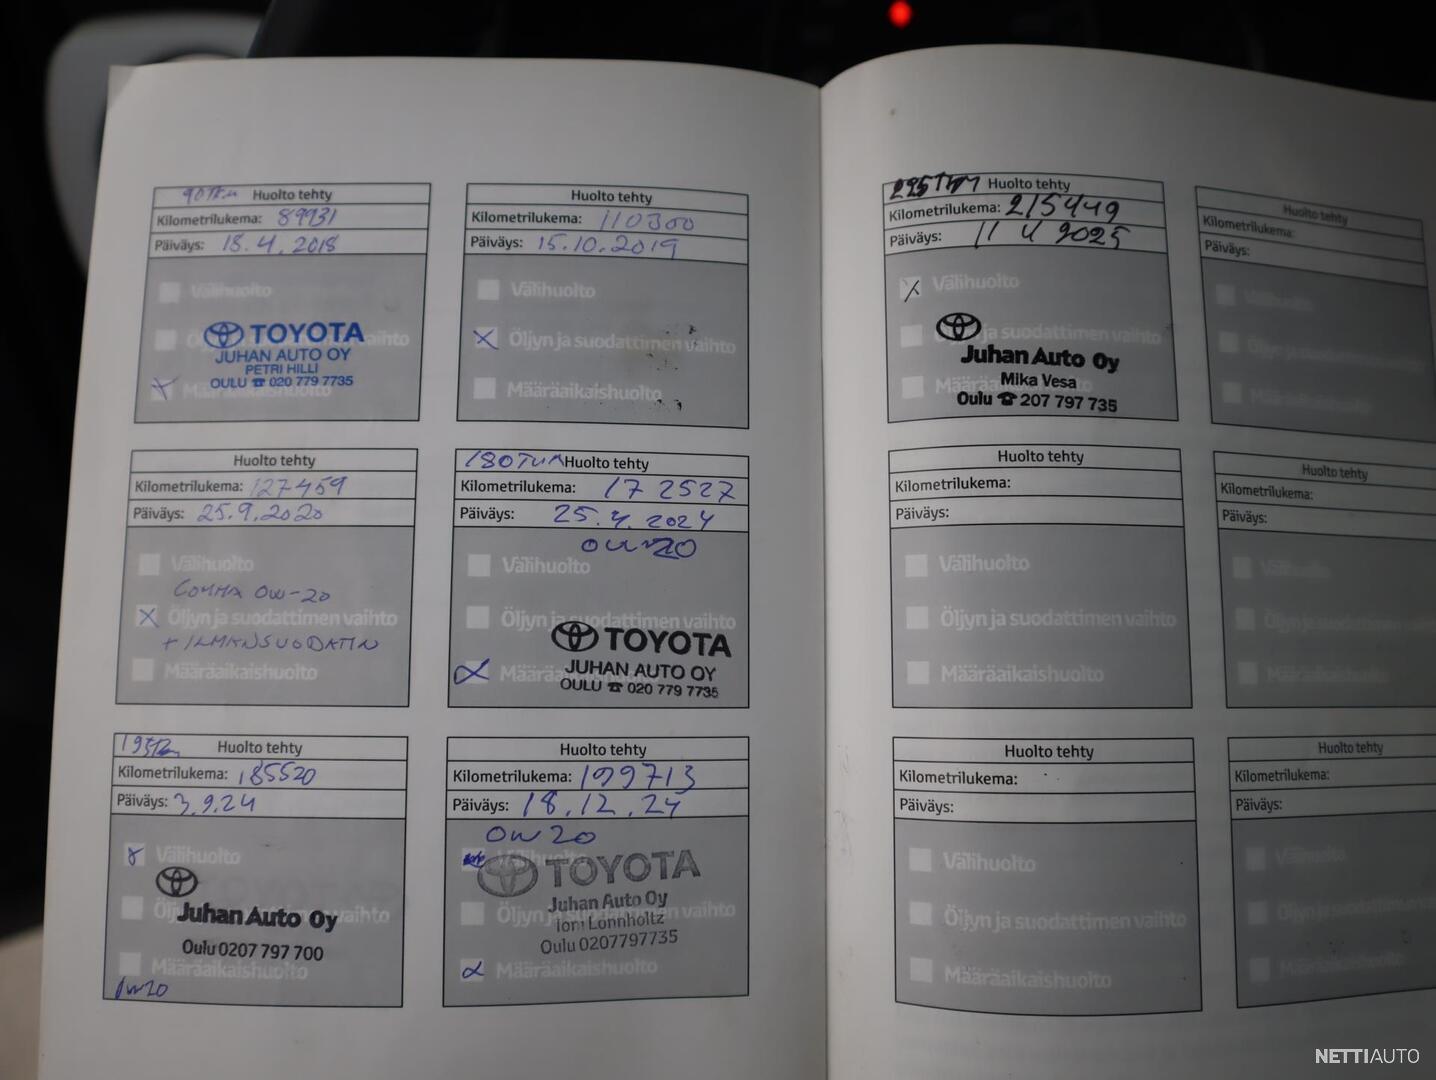 90 Tkm Huolto tehty
Kilometrilukema: 89931
Päiväys: 18.4.2018
Välihuolto
TOYOTA
JUHAN AUTO OY
PETRI HILLI
OULU ☎ 020 779 7735
Huolto tehty
Kilometrilukema: 110300
Päiväys: 15.10.2019
Välihuolto
X Öljyn ja suodattimen vaihto
Määräaikaishuolto
Huolto tehty
Kilometrilukema: 127459
Päiväys: 25.9.2020
Välihuolto
COMMA 0W-20
X Öljyn ja suodattimen vaihto
+ ILMANSUODATIN
Määräaikaishuolto
180TKM Huolto tehty
Kilometrilukema: 172527
Päiväys: 25.4.2024
0W20
Välihuolto
Öljyn ja suodattimen vaihto
TOYOTA
JUHAN AUTO OY
OULU ☎ 020 779 7735
Huolto tehty
Kilometrilukema: 185520
Päiväys: 3.9.24
Välihuolto
Juhan Auto Oy
Oulu 0207 797 700
Määräaikaishuolto
0W20
Huolto tehty
Kilometrilukema: 199713
Päiväys: 18.12.24
0W20
TOYOTA
Juhan Auto Oy
Öljyn ja suodattimen vaihto
Tomi Lonnholtz
Oulu 0207797735
Määräaikaishuolto
Huolto tehty
Kilometrilukema: 215449
Päiväys: 11 4 2025
X Välihuolto
Juhan Auto Oy
Mika Vesa
Oulu ☎ 207 797 735
Huolto tehty
Kilometrilukema:
Päiväys:
Välihuolto
Öljyn ja suodattimen vaihto
Määräaikaishuolto
Huolto tehty
Kilometrilukema:
Päiväys:
Välihuolto
Öljyn ja suodattimen vaihto
Määräaikaishuolto
Huolto tehty
Kilometrilukema:
Päiväys:
Välihuolto
Öljyn ja suodattimen vaihto
Määräaikaishuolto
Huolto tehty
Kilometrilukema:
Päiväys:
Välihuolto
Öljyn ja suodattimen
Määräaikaishuolto
Huolto tehty
Kilometrilukema:
Päiväys:
Välihuolto
Määräaikaishuolto
NETTIAUTO